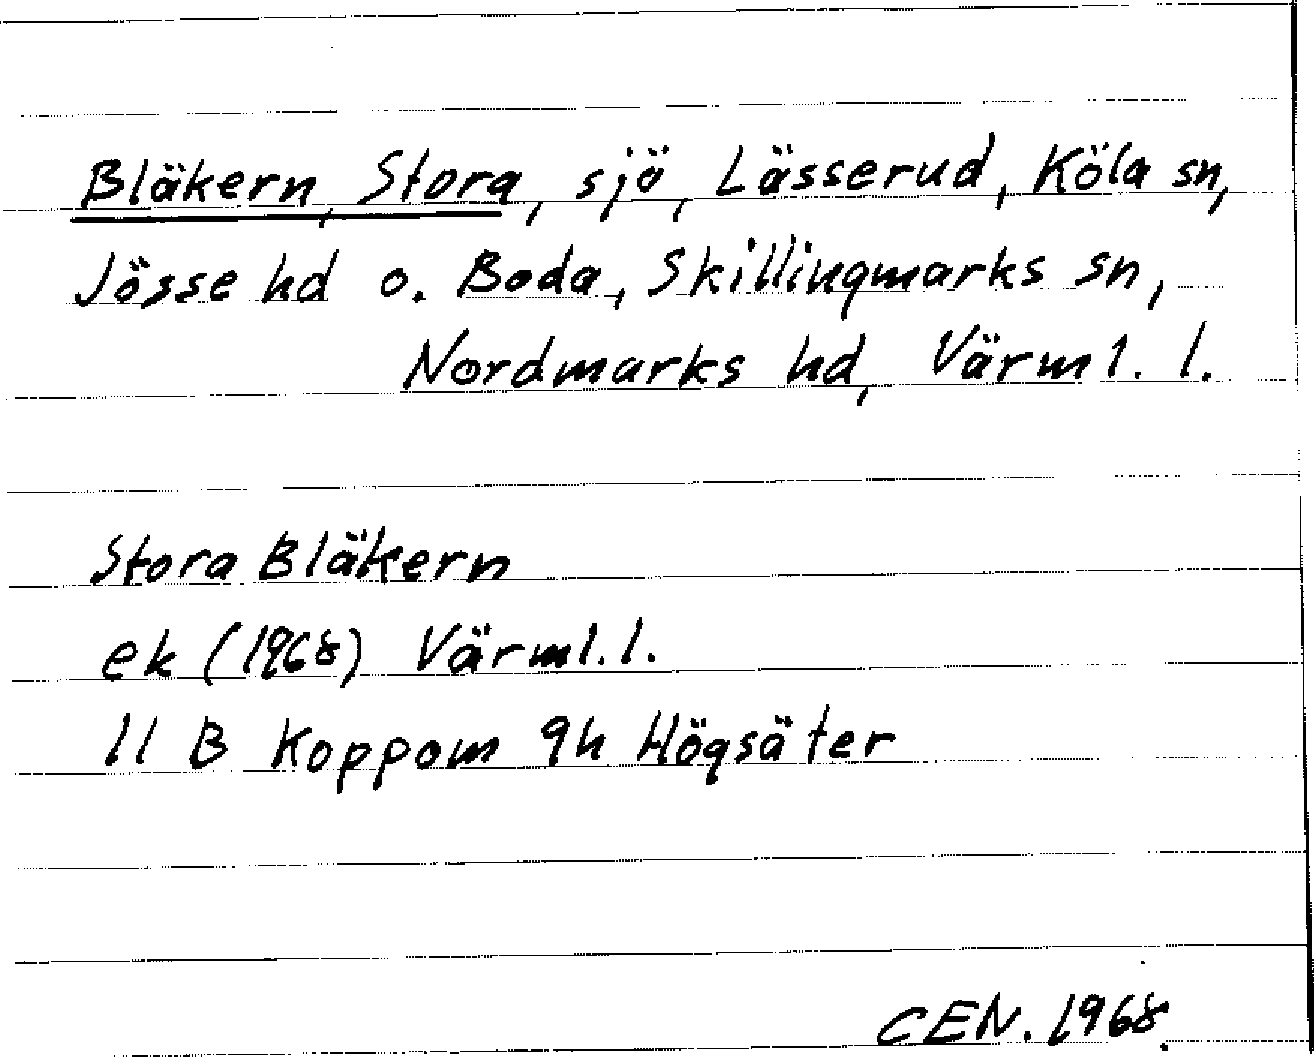 Bläkern, Stora, sjö, Lässerud, Köla sn,
Jösse hd o. Boda, Skillingmarks sn,
Nordmarks hd, Värml. l.
Stora Bläkern
ek (1968) Värml. l.
11 B Koppom 9h Högsäter
CEN. 1968.